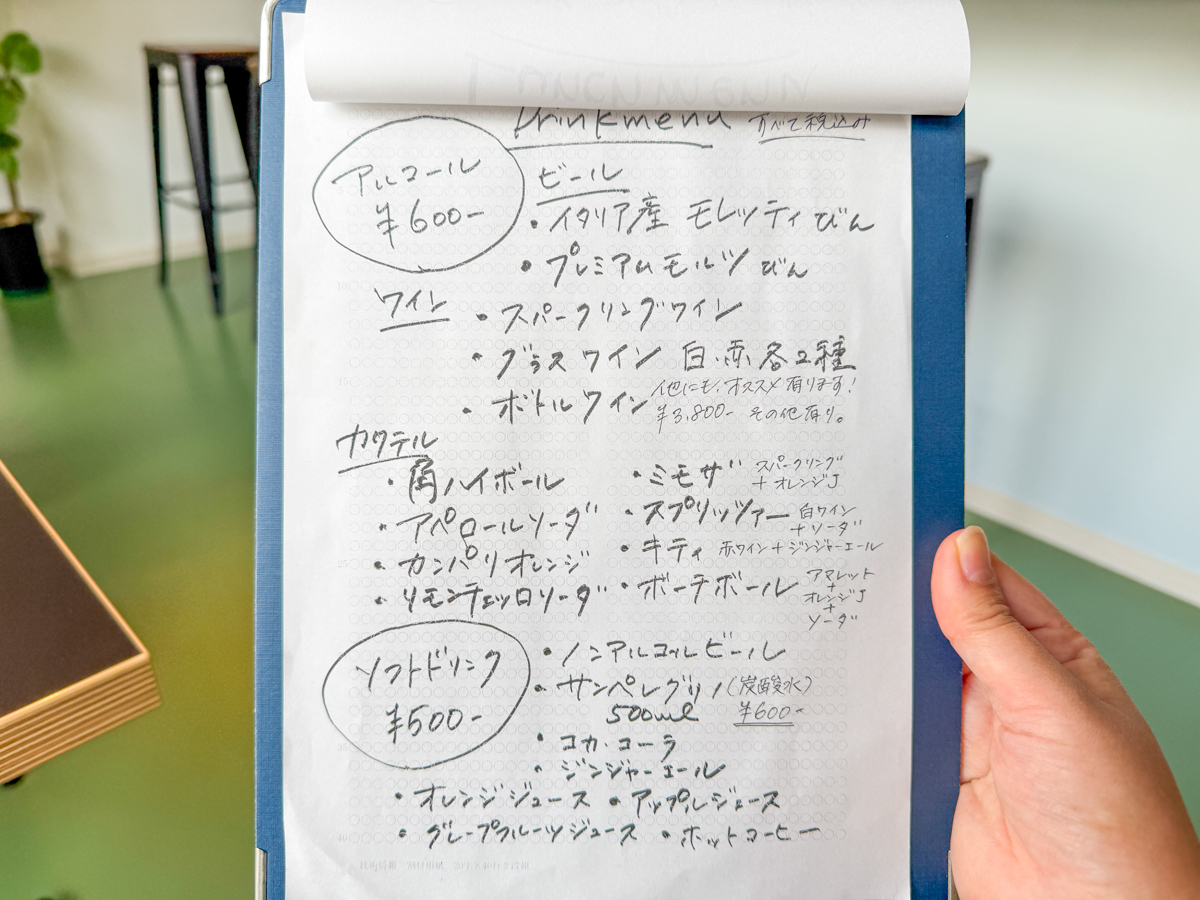 Drinkmenu すべて税込み
アルコール
¥600-
ビール
・イタリア産 モレッティ びん
・プレミアムモルツ びん
ワイン
・スパークリングワイン
・グラスワイン 白・赤 各2種
・ボトルワイン
他にも、オススメ有ります!
¥3,800- その他有り。
カクテル
・角ハイボール
・アペロールソーダ
・カンパリオレンジ
・リモンチェッロソーダ
・ミモザ スパークリング
+オレンジJ
・スプリッツァー 白ワイン
+ソーダ
・キティ 赤ワイン+ジンジャーエール
・ボーチボール アマレット
+
オレンジJ
+
ソーダ
ソフトドリンク
¥500-
・ノンアルコールビール
・サンペレグリノ(炭酸水)
500ml ¥600-
・コカ・コーラ
・ジンジャーエール
・オレンジジュース ・アップルジュース
・グレープフルーツジュース ・ホットコーヒー